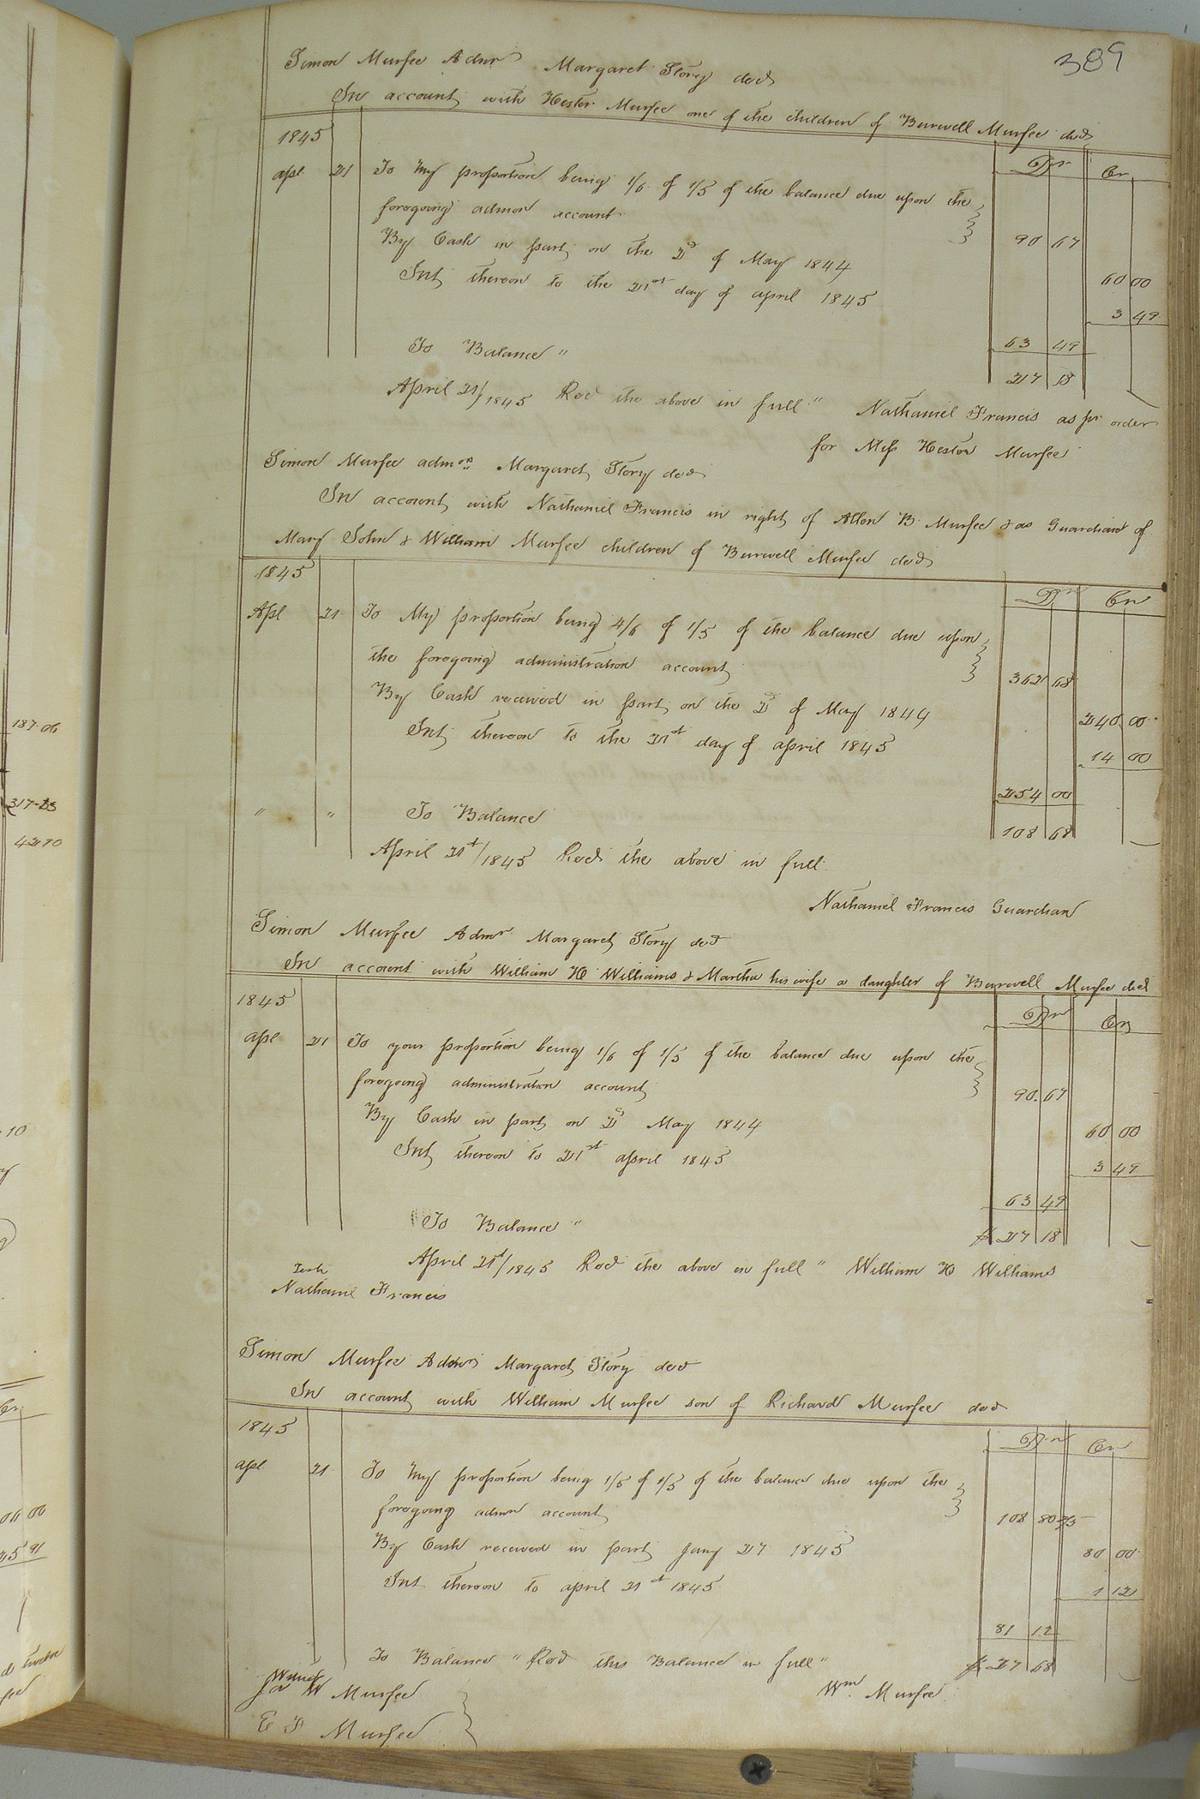 389
Simon Murfee Admr Margaret Story decd
In account with Hester Murfee one of the children of Burwell Murfee decd
1845
Dr Cr
Apl 21 To My proportion being 1/6 of 1/5 of the balance due upon the
foregoing admon account 90 67
By Cash in part on the 2d of May 1844 60 00
Int thereon to the 21st day of april 1845 3 49
63 49
To Balance " 27 18
April 21/1845 Recd the above in full " Nathaniel Francis as pr order
for Miss Hester Murfee
Simon Murfee admor Margaret Story decd
In account with Nathaniel Francis in right of Allen B. Murfee & as Guardian of
Mary John & William Murfee children of Burwell Murfee decd
1845
Dr Cr
Apl 21 To My proportion being 4/6 of 1/5 of the balance due upon
the foregoing administration account 362 68
By Cash received in part on the 2d of May 1844 240 00
Int thereon to the 21st day of april 1845 14 00
254 00
" " To Balance 108 68
April 21st/1845 Recd the above in full
Nathaniel Francis Guardian
Simon Murfee Admr Margaret Story decd
In account with William H Williams & Martha his wife a daughter of Burwell Murfee decd
1845
Dr Cr
apl 21 To your proportion being 1/6 of 1/5 of the balance due upon the
foregoing administration account 90 67
By Cash in part on 2d May 1844 60 00
Int thereon to 21st april 1845 3 49
63 49
To Balance " $27 18
April 21st/1845 Recd the above in full " William H Williams
Teste
Nathaniel Francis
Simon Murfee Admr Margaret Story decd
In account with William Murfee son of Richard Murfee decd
1845
Dr Cr
apl 21 To My proportion being 1/5 of 1/5 of the balance due upon the
foregoing admon account 108 80
By Cash received in part Jany 27 1845 80 00
Int thereon to april 21st 1845 1 12
81 12
To Balance " Recd this Balance in full " $27 68
Witness Wm Murfee
W Murfee
E T Murfee
187.06